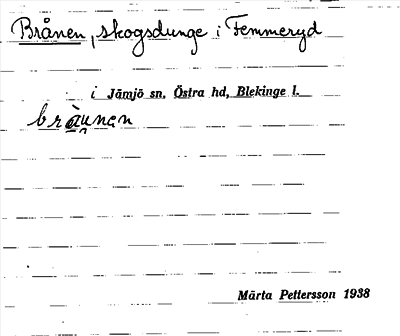 Brånen, skogsdunge i Femmeryd
i Jämjö sn, Östra hd, Blekinge l.
bràu̯nen
Märta Pettersson 1938